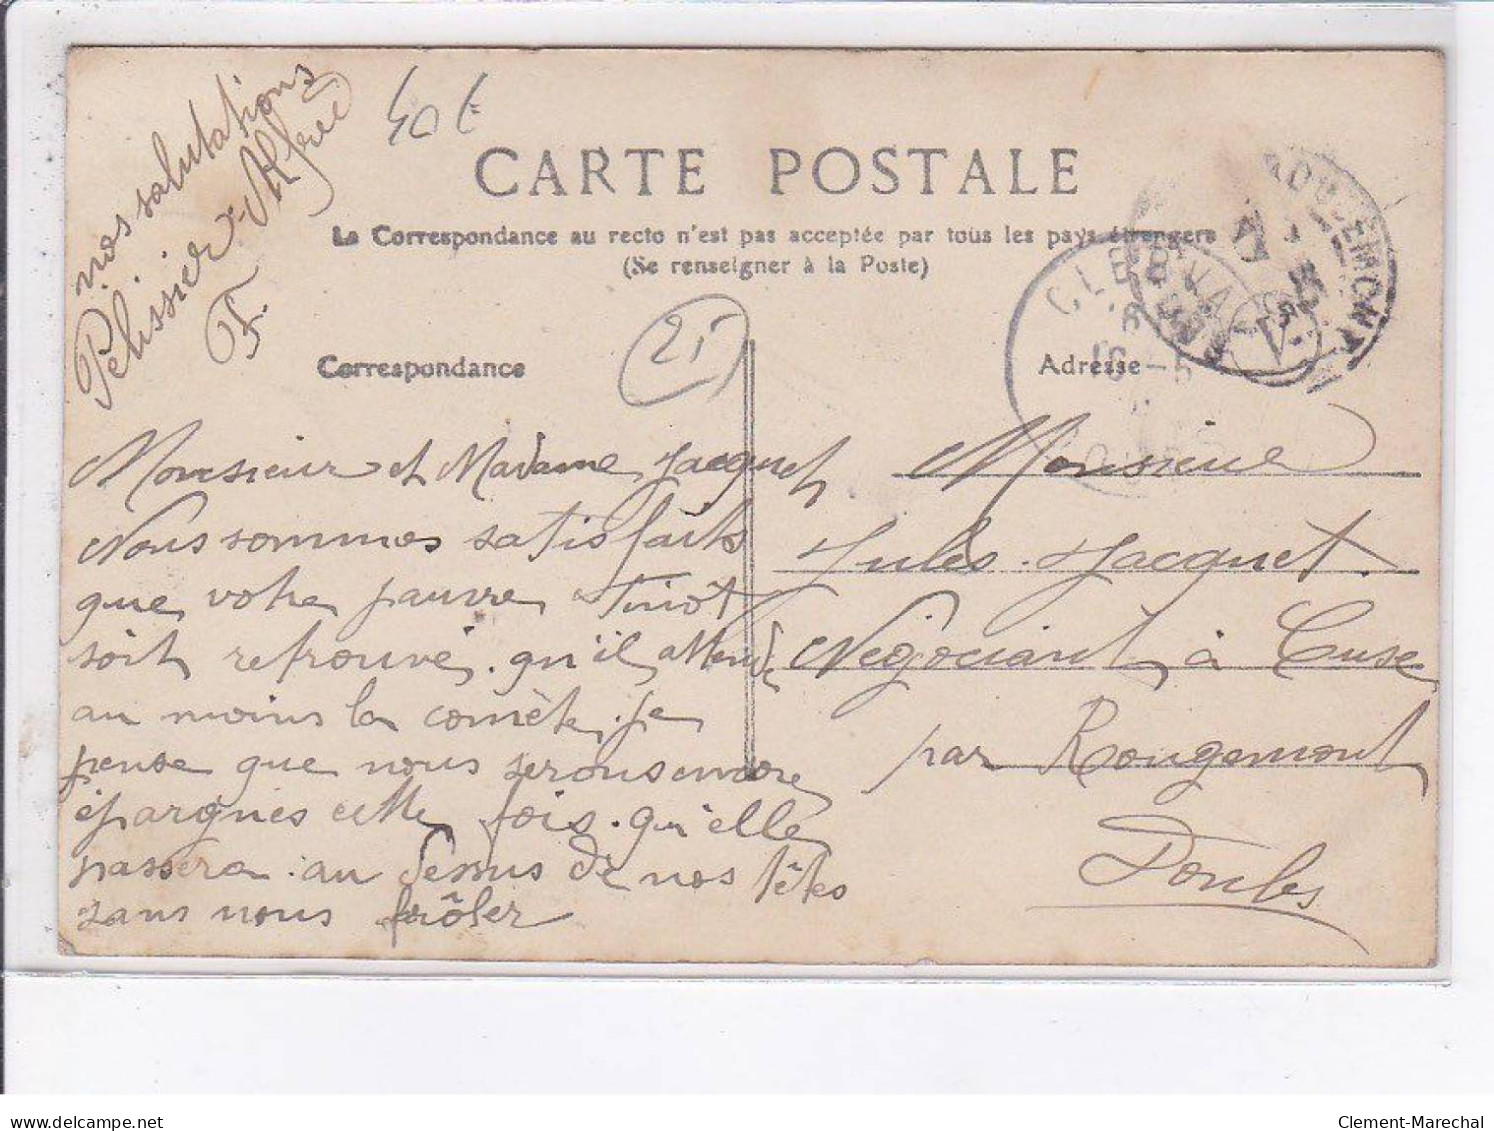 nos salutations
Pélissier Alfred
F.
40 €
CARTE POSTALE
La Correspondance au recto n'est pas acceptée par tous les pays étrangers
(Se renseigner à la Poste)
21
Correspondance
Monsieur et Madame Jacquet
Nous sommes satisfaits
que votre pauvre
soit retrouvé. qu'il attende
au moins la comète. je
pense que nous serons encore
épargnés cette fois. qu'elle
passera au dessus de nos têtes
sans nous frôler
Adresse
Monsieur
Jules Jacquet.
Négociant à Cuse
par Rougemont
Doubs
ROUGEMONT
CLERVAL
Clement-Marechal
www.delcampe.net